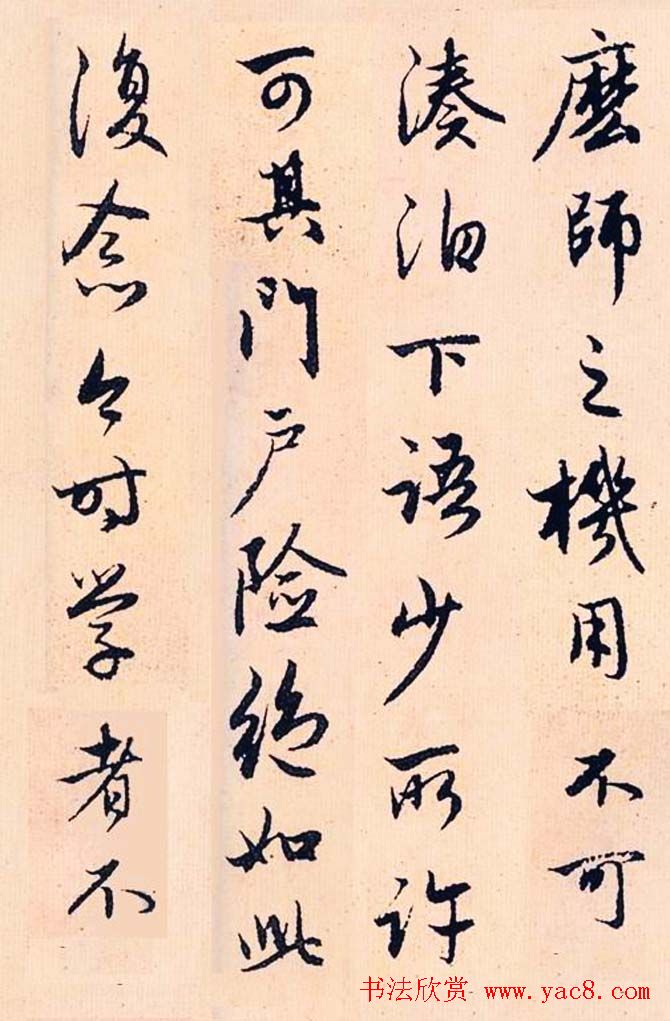 麽師之機用不可
湊泊下語少所許
可其門户险絶如此
復念今时学者不
书法欣赏 www.yac8.com